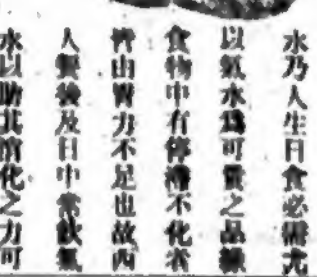 水乃人生日食必需尤
以氣水爲可貴之品緣
食物中有停滯不化者
皆由胃力不足也故西
人餐後及日中常飲氣
水以助其消化之力可